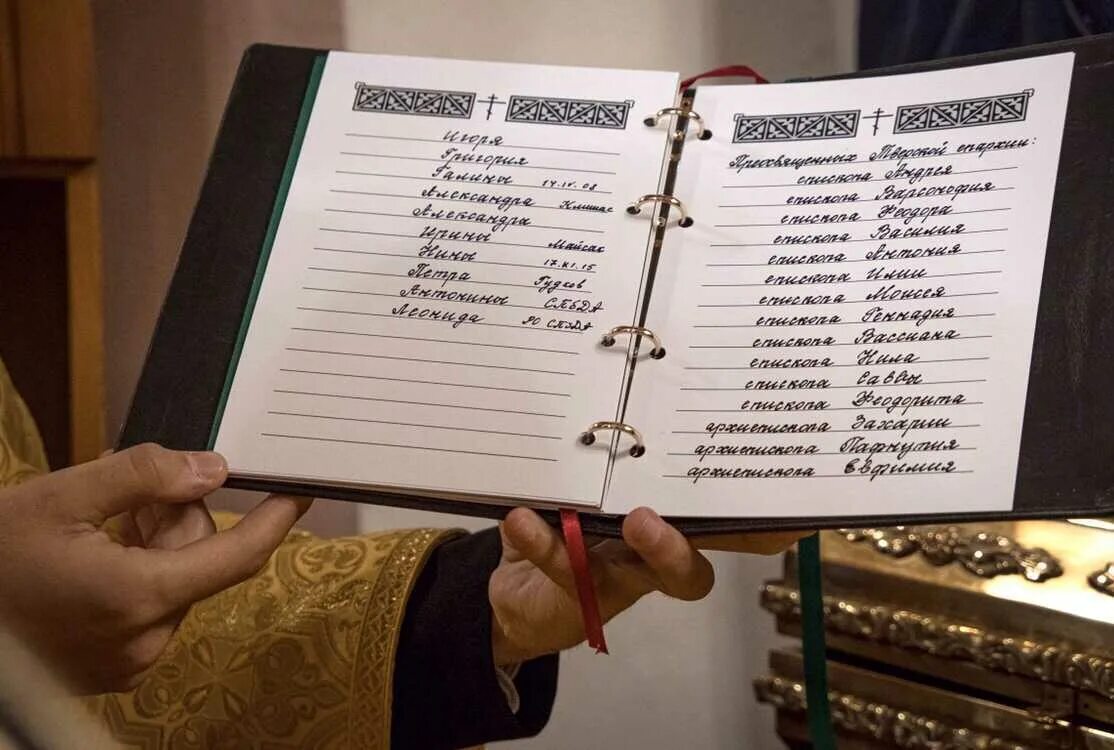 Игоря
Григория
Галины 14.IV.08
Александра Клишас
Александра
Ирины Майсас
Нины 17.XI.15
Петра Гудков
Антонины СПбДА
Леонида РО СПбДА
Преосвященных Тверской епархии:
епископа Андрея
епископа Варсонофия
епископа Феодора
епископа Василия
епископа Антония
епископа Илии
епископа Моисея
епископа Геннадия
епископа Вассиана
епископа Нила
епископа Саввы
епископа Феодорита
архиепископа Захарии
архиепископа Пафнутия
архиепископа Евфимия